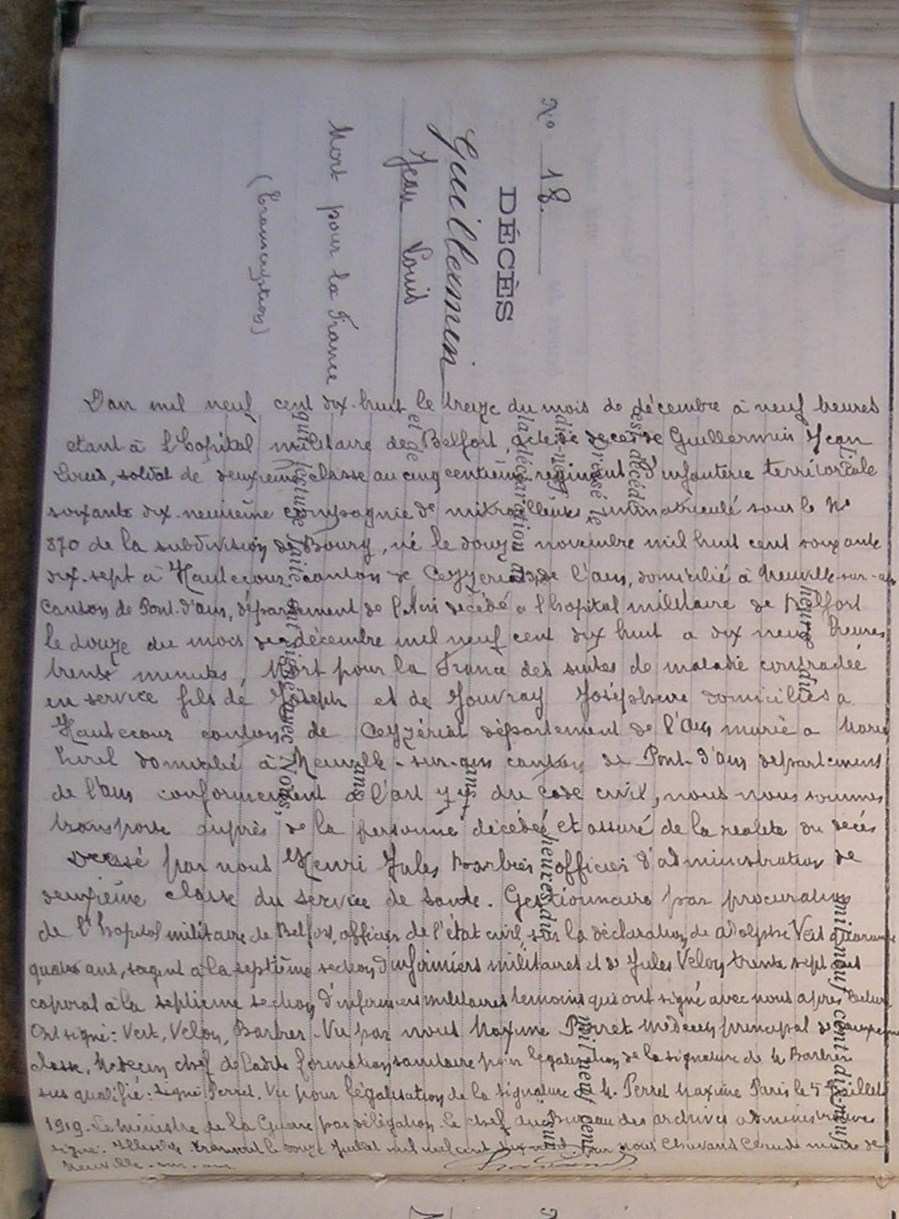 N° 18.
DÉCÈS
Guillermin
Jean Louis
Mort pour la France
(Transcription)
L'an mil neuf cent dix-huit le treize du mois de décembre à neuf heures
etant à l'hôpital militaire de Belfort acte de décès de Guillermin Jean
Louis, soldat de deuxième classe au cinq centième régiment d'infanterie territoriale
soixante dix-neuvième compagnie de mitrailleuses immatriculé sous le N°
870 de la subdivision de Bourg, né le douze novembre mil huit cent soixante
dix-sept à Hautecour canton de Ceyzériat de l'Ain, domicilié à Neuville-sur-ain
canton de Pont-d'ain, département de l'Ain décédé à l'hôpital militaire de Belfort
le douze du mois de décembre mil neuf cent dix huit à dix neuf heures
trente minutes, Mort pour la France des suites de maladie contractée
en service fils de Joseph et de Jouvray Joséphine domiciliés à
Hautecour canton de Ceyzériat département de l'Ain marié a Marie
domicilié à Neuville-sur-ain canton de Pont-d'Ain département
de l'Ain conformément à l'art 77 du code civil, nous nous sommes
transporté auprès de la personne décédée et assuré de la réalité du décès
Dressé par nous Henri Jules Barbier officier d'administration de
deuxième classe du service de santé. Gestionnaire par procuration
de l'hôpital militaire de Belfort, officier de l'état civil sur la déclaration de Adolphe Vert quarante
quatre ans, sergent à la septième section d'infirmiers militaires et de Jules Veloy trente sept ans
caporal à la septième section d'infirmiers militaires témoins qui ont signé avec nous après lecture
Ont signé: Vert, Veloy, Barbier. Vu par nous Maxime Perret Médecin principal de deuxième
classe, Médecin chef de ladite formation sanitaire pour légalisation de la signature de M. Barbier
sus qualifié: signé Perret. Vu pour légalisation de la signature de M. Perret Maxime Paris le 5 Juillet
1919. Le Ministre de la Guerre par délégation le chef du Bureau des archives administratives
signé: transcrit le Juillet mil neuf cent dix neuf. Par nous Claude maire de
Neuville-sur-ain.
est décédé
dressé le
la déclaration de
et de
qui, lecture faite, ont signé avec Nous,
ans,
ans,
heure du
heure du
mil neuf cent dix-neuf
mil neuf cent